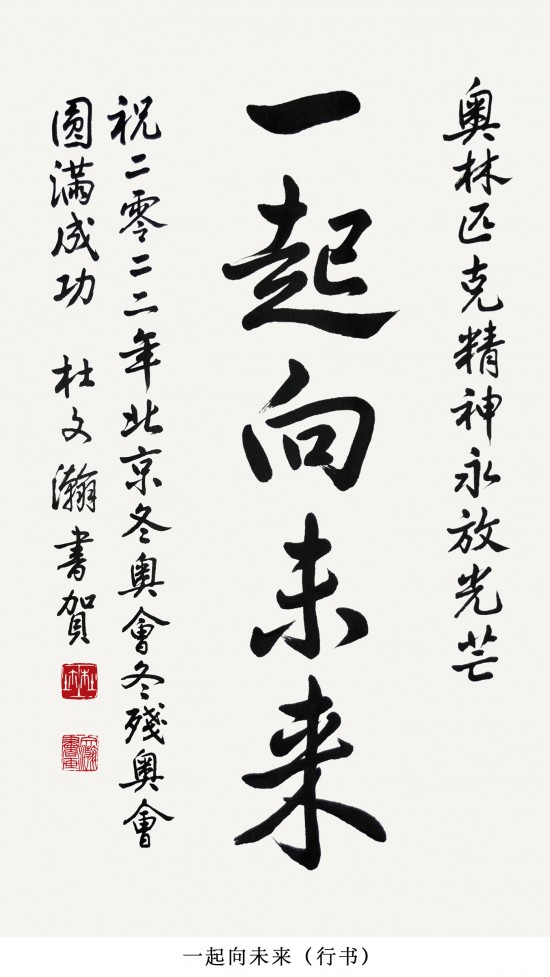 奥林匹克精神永放光芒
一起向未来
祝二零二二年北京冬奥會冬殘奥會
圆滿成功 杜文瀚書賀
一起向未来（行书）